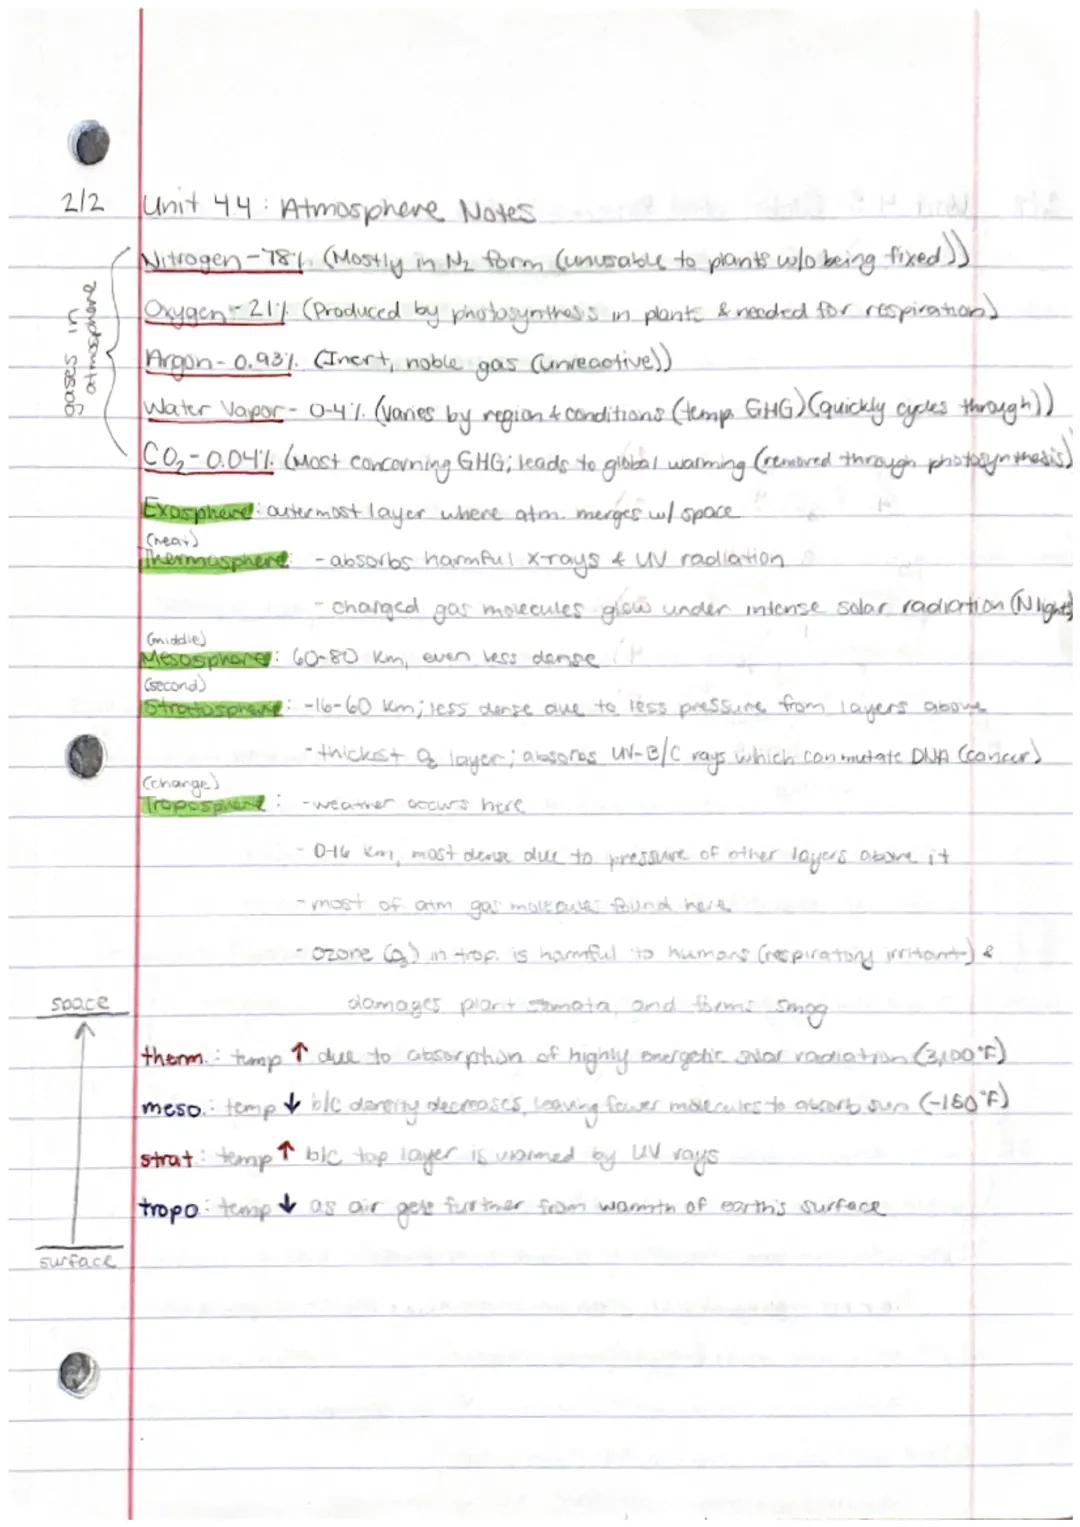 2/2 Unit 4.4: Atmosphere Notes
gases in atmosphere
Nitrogen - 78% (Mostly in N₂ form (unusable to plants w/o being fixed))
Oxygen - 21% (Produced by photosynthesis in plants & needed for respiration)
Argon - 0.93% (Inert, noble gas (unreactive))
Water Vapor - 0-4% (varies by region & conditions (temp. GHG) (quickly cycles through))
CO₂ - 0.04% (Most concerning GHG; leads to global warming (removed through photosynthesis)
Exosphere: outermost layer where atm. merges w/ space
(heat)
Thermosphere: - absorbs harmful x-rays & UV radiation
- charged gas molecules glow under intense solar radiation (N lights)
(middle)
Mesosphere: 60-80 km, even less dense
(second)
Stratosphere: - 16-60 km; less dense due to less pressure from layers above
- thickest O₃ layer; absorbs UV-B/C rays which can mutate DNA (cancer)
(change)
Troposphere: - weather occurs here
- 0-16 km, most dense due to pressure of other layers above it
- most of atm gas molecules found here
- ozone (O₃) in trop. is harmful to humans (respiratory irritant) &
damages plant stomata, and forms smog
space
therm.: temp ↑ due to absorption of highly energetic solar radiation (3,100°F)
meso.: temp ↓ b/c density decreases, leaving fewer molecules to absorb sun (-150°F)
strat: temp ↑ b/c top layer is warmed by UV rays
tropo: temp ↓ as air gets further from warmth of earth's surface
surface